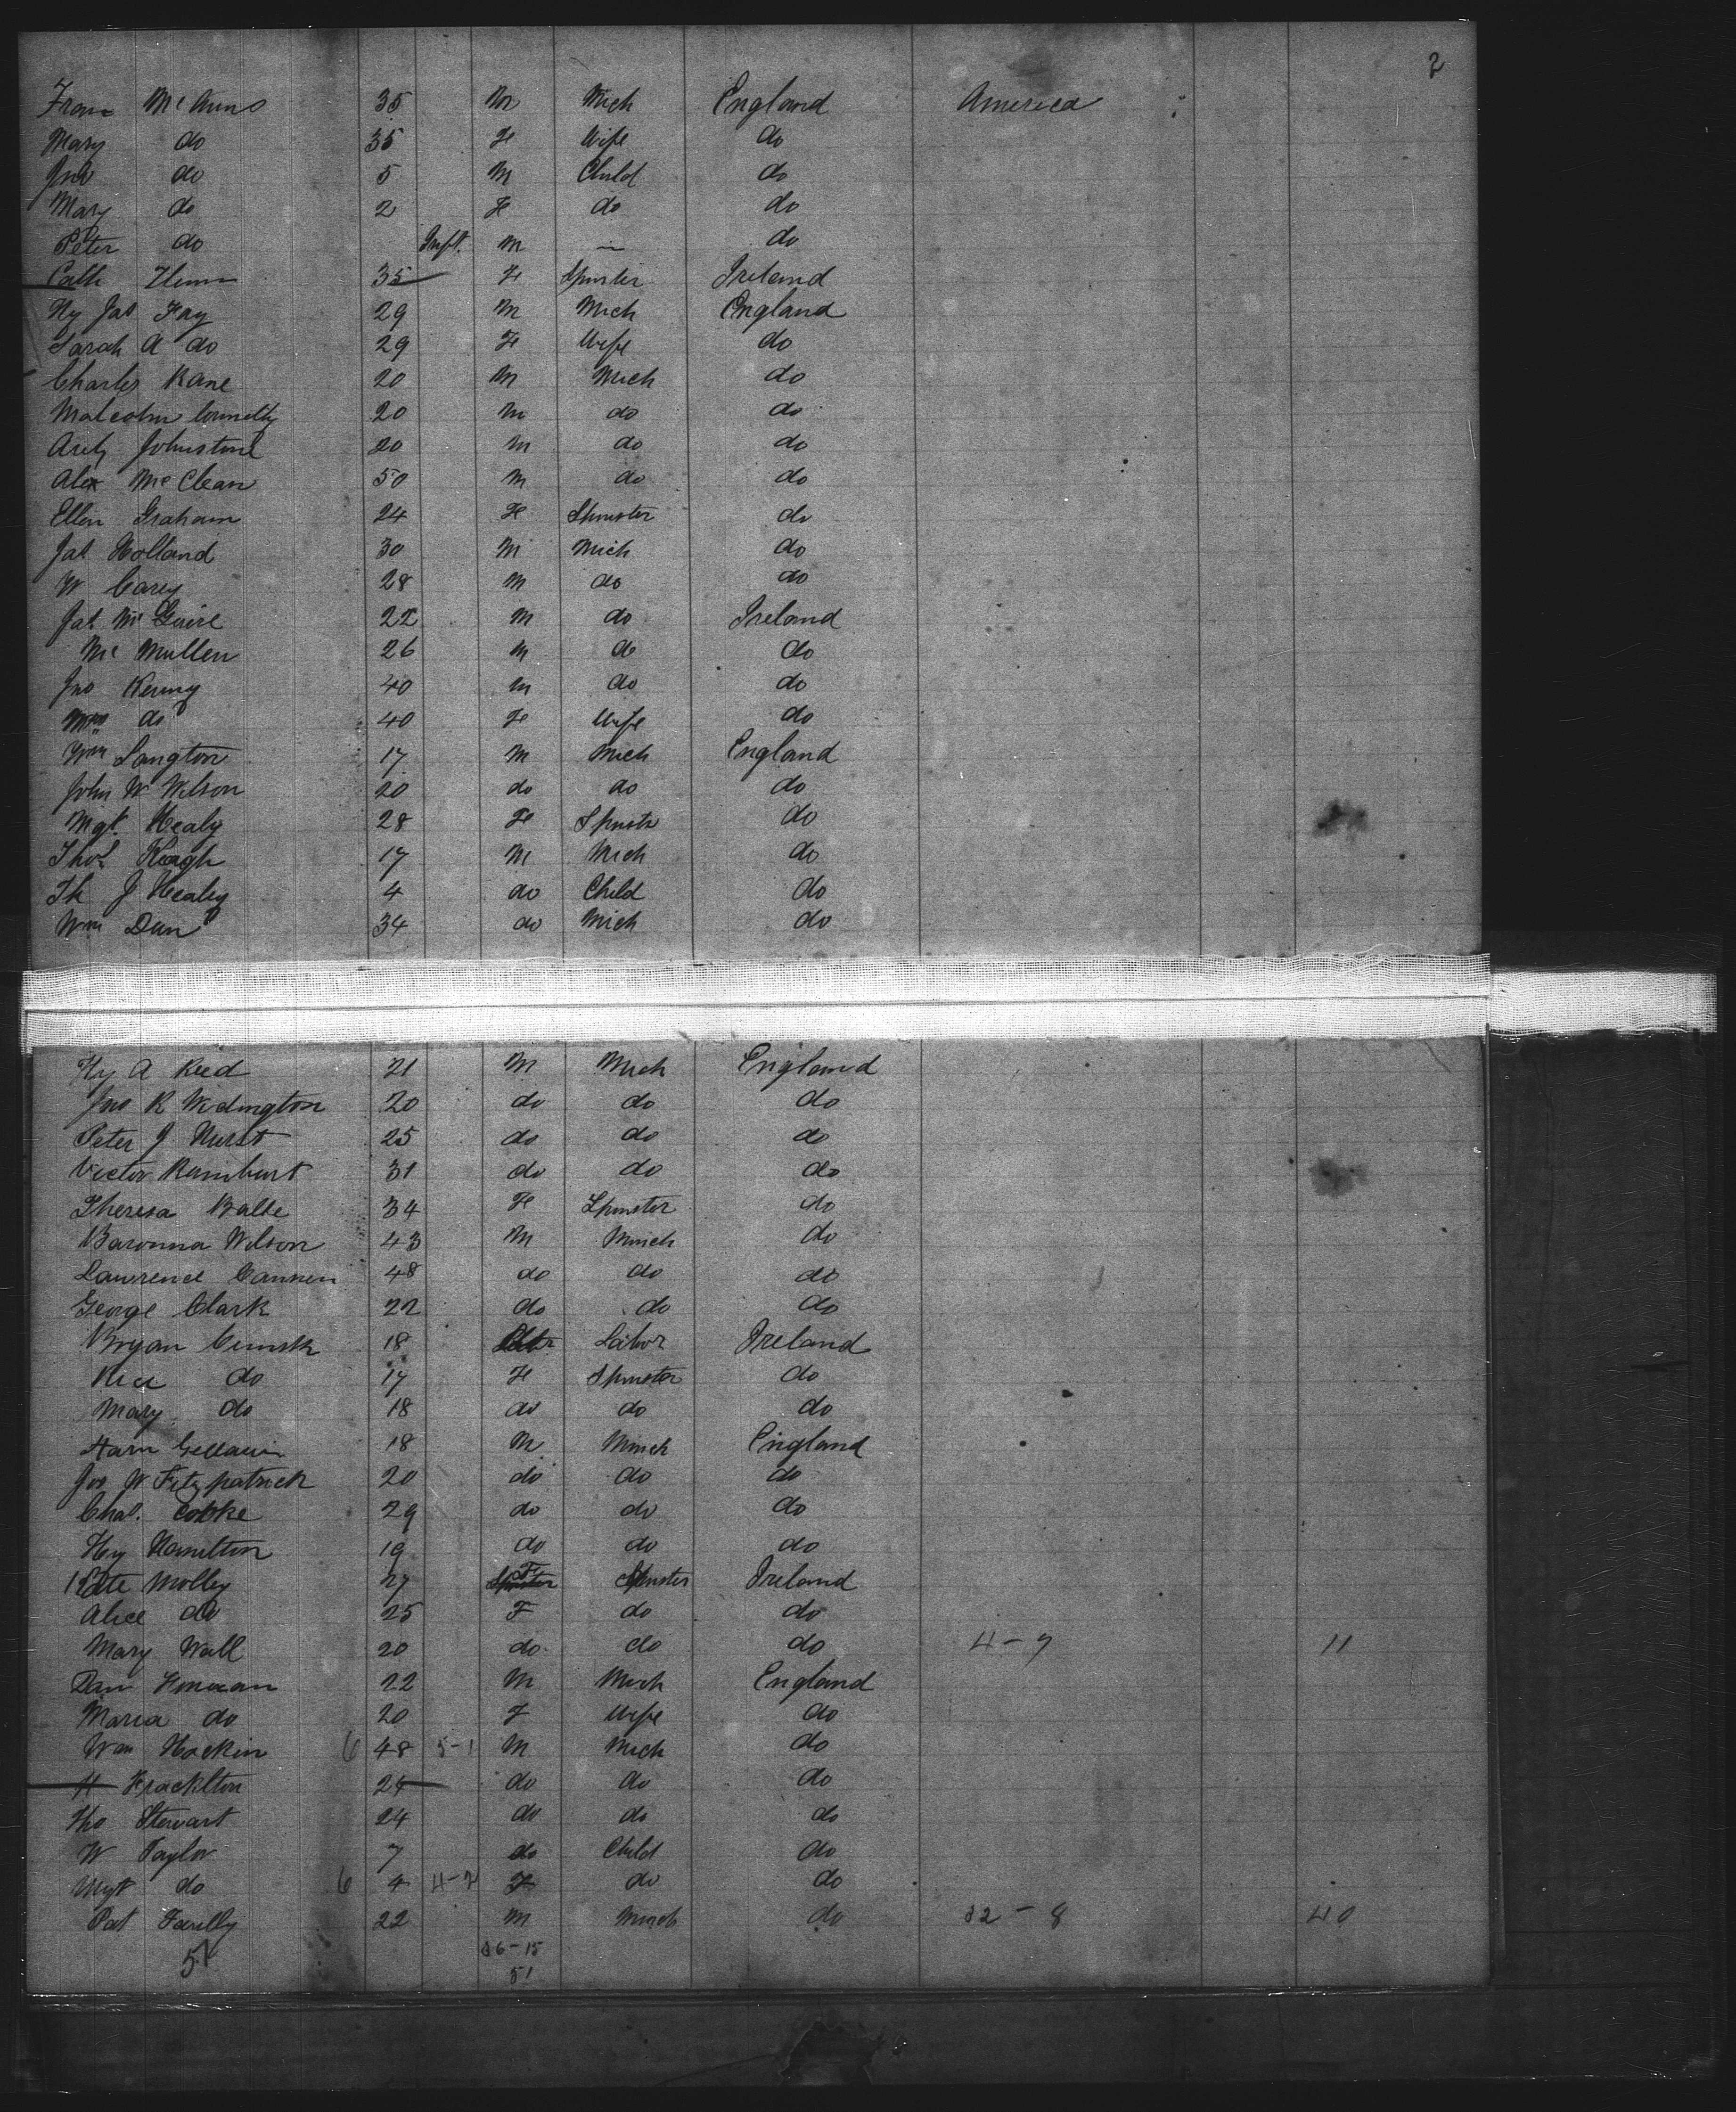 2
Fran Mc Anns 35 M Mich England America
Mary do 35 F Wife do
Jno do 5 M Child do
Mary do 2 F do do
Peter do Inft. M — do
Cath 35 F Spinster Ireland
Hy Jas Fay 29 M Mich England
Sarah A do 29 F Wife do
Charles Kane 20 M Mich do
Malcolm Connelly 20 M do do
Arch Johnstone 20 M do do
Alex Mc Clean 50 M do do
Ellen Graham 24 F Spinster do
Jas Holland 30 M Mich do
W Carey 28 M do do
Jas Mc Guire 22 M do Ireland
Mc Mullen 26 M do do
Jno Kenny 40 M do do
Mrs do 40 F Wife do
Wm Langton 17 M Mich England
John W Wilson 20 do do do
Mgt. Healy 28 F Spinstr do
Thos Keogh 17 M Mich do
Th J Healey 4 do Child do
Wm Dun 34 do Mich do
Hy A Reed 21 M Mich England
Jno R Widington 20 do do do
Peter J Hurst 25 do do do
Victor Rambart 31 do do do
Theresa Balbe 34 F Spinster do
Baronna Wilson 43 M Mich do
Lawrence Cannen 48 do do do
George Clark 22 do do do
Bryan 18 Labor Ireland
do 17 F Spinster do
Mary do 18 do do do
18 M Mich England
Jos W Fitzpatrick 20 do do do
Chas. Cooke 29 do do do
Hy Hamilton 19 do do do
Kate Molley 27 F Spinster Ireland
Alice do 25 F do do
Mary Wall 20 do do do 4-7 11
Dan 22 M Mich England
Maria do 20 F Wife do
Wm Hockin 6 48 5-1 M Mich do
H Frackelton 24 do do do
Tho Stewart 24 do do do
W Taylor 7 do Child do
Mgt do 6 4 4-2 F do do
Pat Farelly 22 M Mich do 32-8 40
51 36-15
51